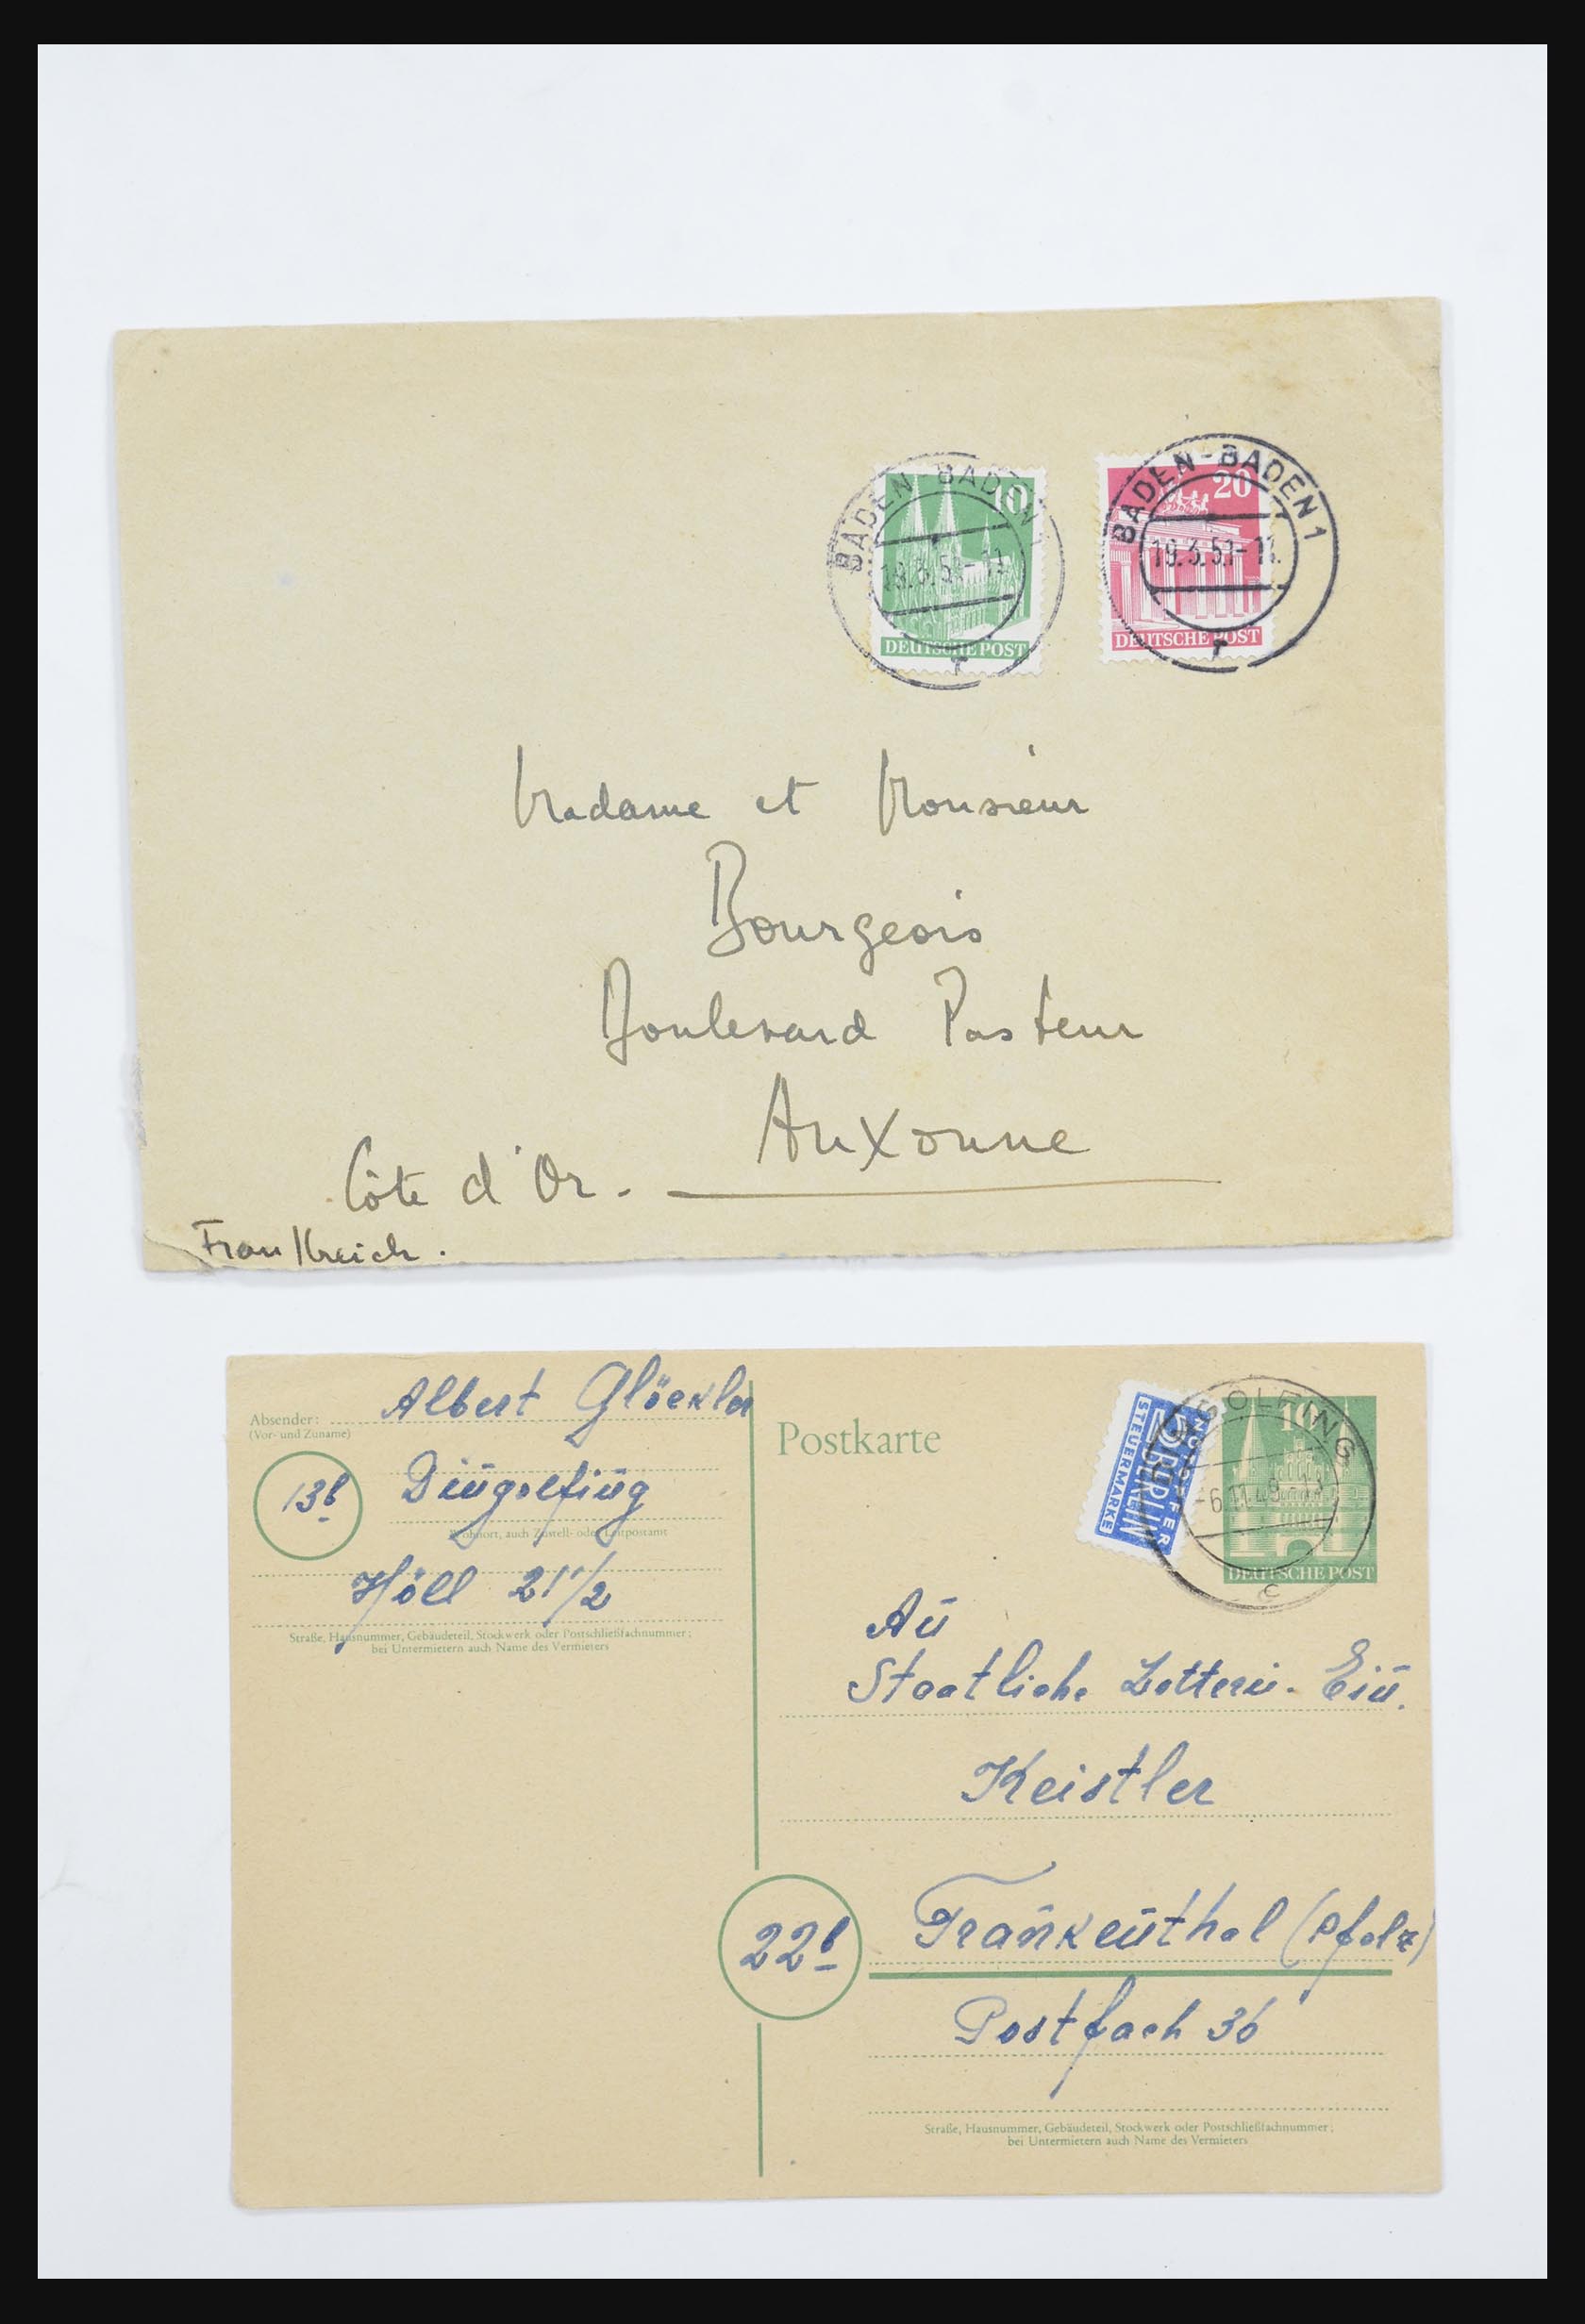 BADEN-BADEN
10
19.3.51-11
DEUTSCHE POST
r
BADEN-BADEN 1
20
19.3.51-11
DEUTSCHE POST
r
Madame et Monsieur
Bourgeois
Boulevard Pasteur
Auxonne
Côte d'Or.
Frankreich.
Absender:
(Vor- und Zuname)
Albert
13b
Dingolfing
Wohnort, auch Zustell- oder Leitpostamt
Höll 21 1/2
Straße, Hausnummer, Gebäudeteil, Stockwerk oder Postschließfachnummer;
bei Untermietern auch Name des Vermieters
Postkarte
NOTOPFER
2 BERLIN
STEUERMARKE
DINGOLFING
10
-6.11.49-13
DEUTSCHE POST
c
An
Staatliche Lotterie-Ein.
Keistler
22b
Frankenthal (Pfalz)
Postfach 36
Straße, Hausnummer, Gebäudeteil, Stockwerk oder Postschließfachnummer;
bei Untermietern auch Name des Vermieters